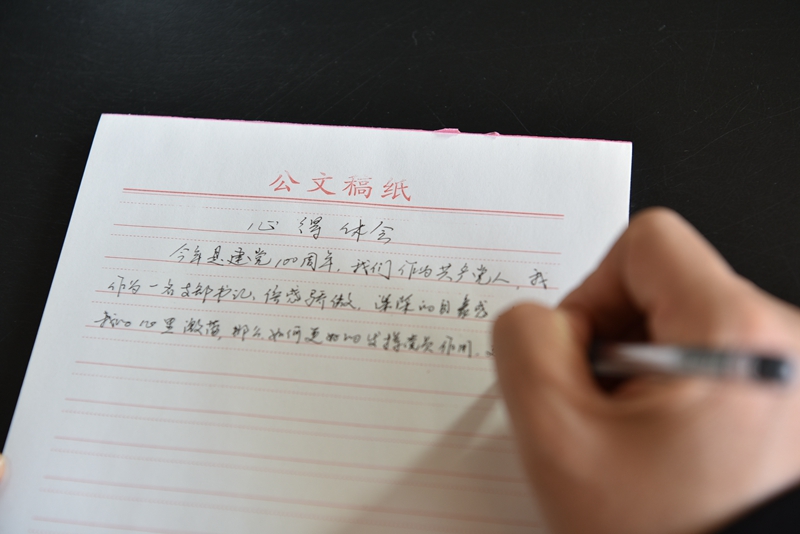 公文稿纸
心得体会
今年是建党100周年，我们作为共产党人，我
作为一名支部书记，倍感骄傲，深深的自豪感
我心里激荡，那么如何更好的发挥党员作用，